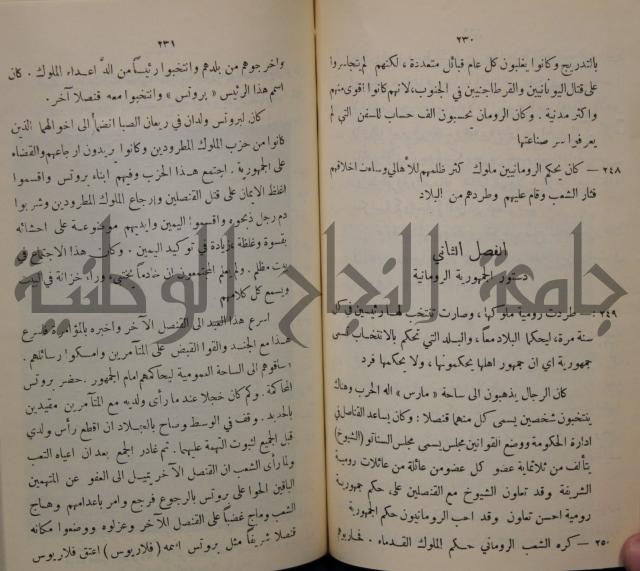 ٢٣٠
بالتدريج وكانوا يغلبون كل عام قبائل متعددة ، لكنهم لم يتجاسروا
على قتال اليونانيين والقرطاجنيين في الجنوب، لانهم كانوا اقوى منهم
واكثر مدنية . وكان الرومان يحسبون الف حساب للسفن التي لم
يعرفوا سر صناعتها
٢٤٨ — كان يحكم الرومانيين ملوك كثر ظلمهم للأهالي وساءت اخلاقهم
فثار الشعب وقام عليهم وطردهم من البلاد
الفصل الثاني
دستور الجمهورية الرومانية
٢٤٩ — طردت رومية ملوكها ، وصارت تنتخب لها رئيسين في كل
سنة مرة، ليحكما البلاد معاً ، والبلد التي تحكم بالانتخاب تسمى
جمهورية اي ان جمهور اهلها يحكمونها ، ولا يحكمها فرد
كان الرجال يذهبون الى ساحة « مارس » اله الحرب وهناك
ينتخبون شخصين يسمى كل منهما قنصلا : وكان يساعد القناصل في
ادارة الحكومة ووضع القوانين مجلس يسمى مجلس السناتو (الشيوخ)
يتألف من ثلاثماية عضو كل عضو من عائلة من عائلات رومية
الشريفة وقد تعاون الشيوخ مع القنصلين على حكم جمهورية
رومية احسن تعاون وقد احب الرومانيون حكم الجمهورية
٢٥٠ — كره الشعب الروماني حكم الملوك القدماء . فحاربوهم
٢٣١
واخرجوهم من بلدهم وانتخبوا رئيساً من الدّ اعداء الملوك . كان
اسم هذا الرئيس « بروتس » وانتخبوا معه قنصلا آخر .
كان لبروتس ولدان في ريعان الصبا انضما الى اخوالهما الذين
كانوا من حزب الملوك المطرودين وكانوا يريدون ارجاعهم والقضاء
على الجمهورية . اجتمع هذا الحزب وفيهم ابناء بروتس واقسموا
اغلظ الايمان على قتل القنصلين وإرجاع الملوك المطرودين وشربوا
دم رجل ذبحوه واقسموا اليمين وايديهم موضوعة على احشائه
بقسوة وغلظة زيادة في توكيد اليمين . وكان هذا الاجتماع في
بيت مظلم . ولم يعلم المجتمعون ان خادماً يختبىء وراء خزانة في البيت
ويسمع كل كلامهم
اسرع هذا العبد الى القنصل الآخر واخبره بالمؤامرة فأسرع
هذا مع الجند والقوا القبض على المتآمرين وامسكوا رسائلهم .
وساقوهم الى الساحة العمومية ليحاكمهم امام الجمهور . حضر بروتس
المحاكمة . وكم كان خجلا عند ما رأى ولديه مع المتآمرين مقيدين
بالحديد . وقف في الوسط وصاح بالجلاد ان اقطع رأس ولدي
قبل الجميع لثبوت التهمة عليهما . ثم غادر الجمع بعد ان اعياه التعب
ولما رأى الشعب ان القنصل الآخر يميل الى العفو عن المتهمين
الباقين الحوا على بروتس بالرجوع فرجع وامر باعدامهم وهاج
الشعب وماج غضباً على القنصل الآخر وعزلوه ووضعوا مكانه
قنصلا شريفاً مثل بروتس اسمه ( فلاريوس ) اعتق فلاريوس
جامعة النجاح الوطنية